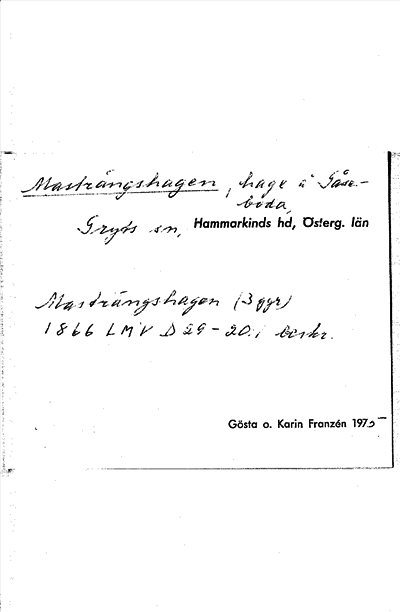 Masträngshagen, hage å Gåse-
böda,
Gryts sn, Hammarkinds hd, Österg. län
Masträngshagen (3 ggr)
1866 LMV D 29-20: i beskr.
Gösta o. Karin Franzén 1975